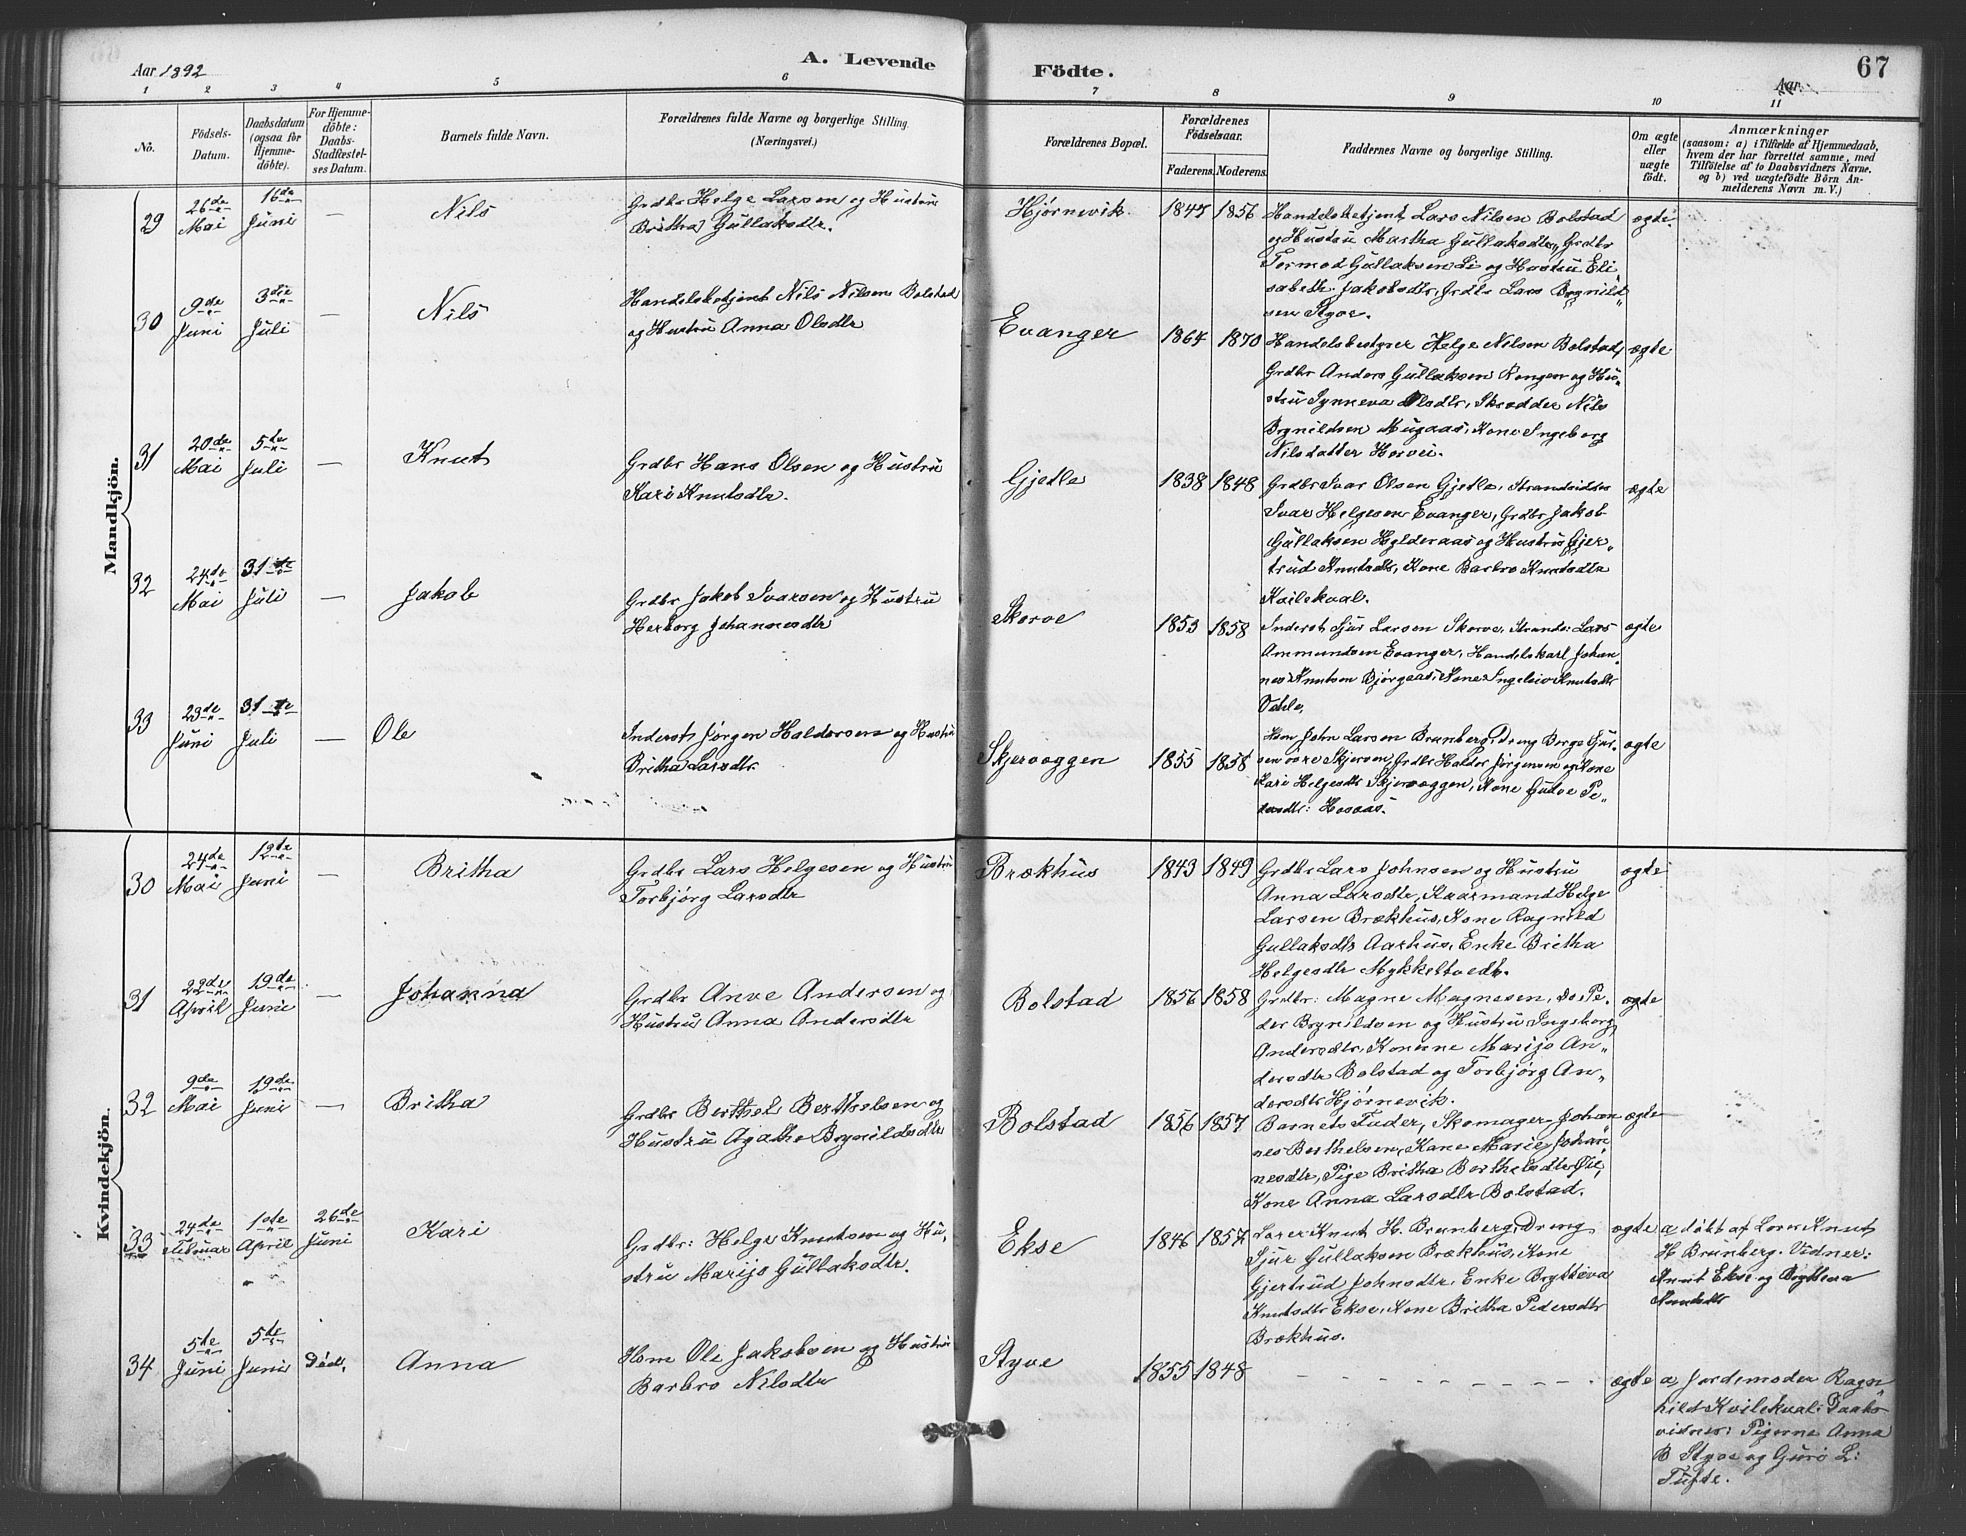 Aar 1892
A. Levende
Födte.
67
Aar
1 2 3 4 5 6 7 8 9 10 11
No.
Födsels-
Datum.
Daabsdatum
(ogsaa for
Hjemme-
döbte).
For Hjemme-
döbte:
Daabs-
Stadfæstel-
ses Datum.
Barnets fulde Navn.
Forældrenes fulde Navne og borgerlige Stilling.
(Næringsvei.)
Forældrenes Bopæl.
Forældrenes
Födselsaar.
Faderens. Moderens.
Faddernes Navne og borgerlige Stilling.
Om ægte
eller
uægte
født.
Anmærkninger
(saasom: a) i Tilfælde af Hjemmedaab,
hvem der har forrettet samme, med
Tilföielse af to Daabsvidners Navne.
og b) ved uægtefödte Börn An-
melderens Navn m. V.)
Mandkjön.
29
26de
Mai
16de
Juni
—
Nils
Grdbr Helge Larsen og Hustru
Britha Gullaksdtr.
Hjørnevik
1847 1856
Handelsbetjent Lars Nilsen Bolstad
og Hustru Martha Gullaksdtr, Grdbr
Tormod Gullaksen Li og Hustru Eli-
sabeth Jakobsdtr, Grdbr Lars Brynild-
sen Styve.
ægte
30
9de
Juni
3die
Juli
—
Nils
Handelsbetjent Nils Nilsen Bolstad
og Hustru Anna Olsdtr
Evanger
1864 1870
Handelsbestyrer Helge Nilsen Bolstad,
Grdbr Anders Gullaksen Rongen og Hu-
stru Synneva Olsdtr, Skrædder Nils
Brynildsen Mugaas, Kone Ingeborg
Nilsdatter Horvei.
ægte
31
20de
Mai
5te
Juli
—
Knut
Grdbr Hans Olsen og Hustru
Kari Knutsdtr.
Gjetle
1838 1848
Grdbr Ivar Olsen Gjetle, Strandsidder
Ivar Helgesen Evanger, Grdbr Jakob
Gullaksen Hylderaas og Hustru Gjer-
trud Knutsdtr, Kone Barbro Knutsdtr
Kvilekval.
ægte
32
24de
Mai
31te
Juli
—
Jakob
Grdbr Jakob Ivarsen og Hustru
Herborg Johannesdtr
Skorve
1853 1858
Inderst Sjur Larsen Skorve, Strands: Lars
Ammundsen Evanger, Handelskarl Johan-
nes Knutsen Bjørgaas, Kone Ingeleiv Knutsdtr
ægte
33
23de
Juni
31te
Juli
—
Ole
Inderst Jørgen Haldorsen og Hustru
Britha Larsdtr.
Skjervæggen
1855 1858
Hsm John Larsen Brunberg, Dreng Børge Sjur-
sen øvre Skjerven, Grdbr Haldor Jørgensen og Kone
Kari Helgesdtr Skjervæggen, Kone Gudve Pe-
dersdtr: Hovaas.
ægte
Kvindekjön.
30
24de
Mai
12te
Juni
—
Britha
Grdbr Lars Helgesen og Hustru
Torbjørg Larsdtr
Brækhus
1843 1849
Grdbr Lars Johnsen og Hustru
Anna Larsdtr, Kaarmand Helge
Larsen Brækhus, Kone Ragnild
Gullaksdtr Aarhus, Enke Britha
Helgesdtr Mykkeltvedt.
ægte
31
22de
April
19de
Juni
—
Johanna
Grdbr Anve Andersen og
Hustru Anna Andersdtr
Bolstad
1856 1858
Grdbr: Magne Magnesen, Do Pe-
der Brynildsen og Hustru Ingeborg
Andersdtr, Konerne Marijo An-
dersdtr Bolstad og Torbjørg An-
dersdtr Hjørnevik.
ægte
32
9de
Mai
19de
Juni
—
Britha
Grdbr Berthel Berthelsen og
Hustru Agatha Brynildsdtr
Bolstad
1856 1857
Barnets Fader, Skomager Johan-
nes Berthelsen, Kone Marie Johan-
nesdtr, Pige Britha Berthelsdtr Øie,
Kone Anna Larsdtr Bolstad.
ægte
33
24de
Februar
1ste
April
26de
Juni
Kari
Grdbr: Helge Knutsen og Hu-
stru Marijo Gullaksdtr.
Ekse
1846 1857
Lærer Knut H. Brunberg, Dreng
Sjur Gullaksen Brækhus, Kone
Gjertrud Johnsdtr, Enke Brytteva
Knutsdtr Ekse, Kone Britha Pedersdtr
Brækhus.
ægte
a døbt af Lærer Knut
H Brunberg. Vidner:
Knut Ekse og Brytteva
Knutsdtr
34
5te
Juni
5te
Juni
Død.
Anna
Hsm Ole Jakobsen og Hustru
Barbro Nilsdtr
Styve
1855 1848
ægte
a, Jordemoder Ragn-
hild Kvilekval: Daabs-
vidner: Pigerne Anna
B Styve og Guro L:
Tufte.